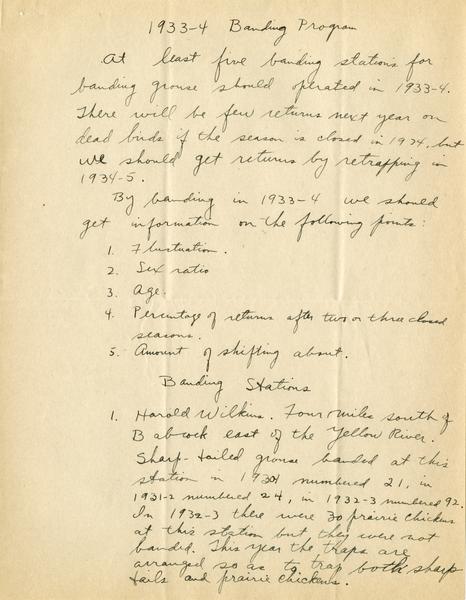 1933-4 Banding Program
At least five banding stations for
banding grouse should operated in 1933-4.
There will be few returns next year on
dead birds if the season is closed in 1934, but
we should get returns by retrapping in
1934-5.
By banding in 1933-4 we should
get information on the following points:
1. Flustuation.
2. Sex ratio
3. Age.
4. Percentage of returns after two or three closed
seasons.
5. Amount of shifting about.
Banding Stations
1. Harold Wilkins. Four miles south of
Babcock east of the Yellow River.
Sharp-tailed grouse banded at this
station in numbered 21, in
1931-2 numbered 24, in 1932-3 numbered 92.
In 1932-3 there were 30 prairie chickens
at this station but they were not
banded. This year the traps are
arranged so as to trap both sharp
tails and prairie chickens.